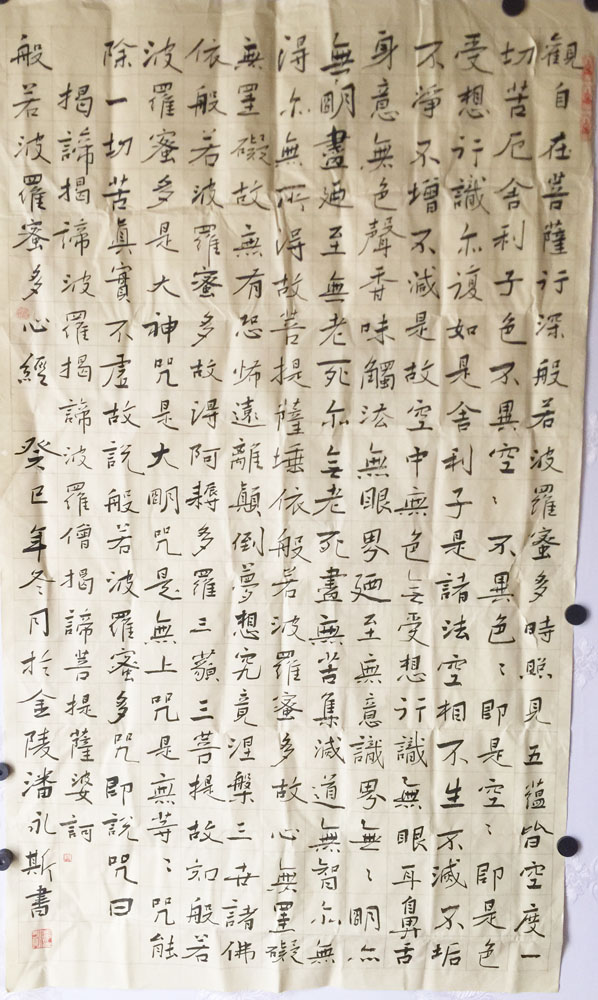 觀自在菩薩行深般若波羅蜜多時照見五蘊皆空度一
切苦厄舍利子色不異空〻不異色〻即是空〻即是色
受想行識尒復如是舍利子是諸法空相不生不滅不垢
不淨不增不減是故空中無色无受想行識無眼耳鼻舌
身意無色聲香味觸法無眼界廼至無意識界無〻眀尒
無眀盡廼至無老死尒无老死盡無苦集滅道無智尒無
得尒無所得故菩提薩埵依般若波羅蜜多故心無罣礙
無罣礙故無有恐怖遠離顛倒夢想究竟涅槃三世諸佛
依般若波羅蜜多故得阿耨多羅三藐三菩提故知般若
波羅蜜多是大神咒是大眀咒是無上咒是無等〻咒能
除一切苦真實不虛故說般若波羅蜜多咒即說咒曰
揭諦揭諦波羅揭諦波羅僧揭諦菩提薩婆訶
般若波羅蜜多心經 癸巳年冬月於金陵潘永斯書